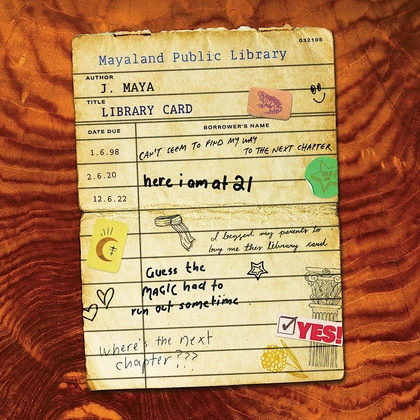 032105
Mayaland Public Library
AUTHOR
J. MAYA
TITLE
LIBRARY CARD
DATE DUE
BORROWER'S NAME
1.6.98
CAN'T SEEM TO FIND MY WAY
TO THE NEXT CHAPTER
2.6.20
here i am at 21
12.6.22
I begged my parents to
buy me this library card
Guess the
MAGIC had to
run out sometime
YES!
Where's the next
chapter???